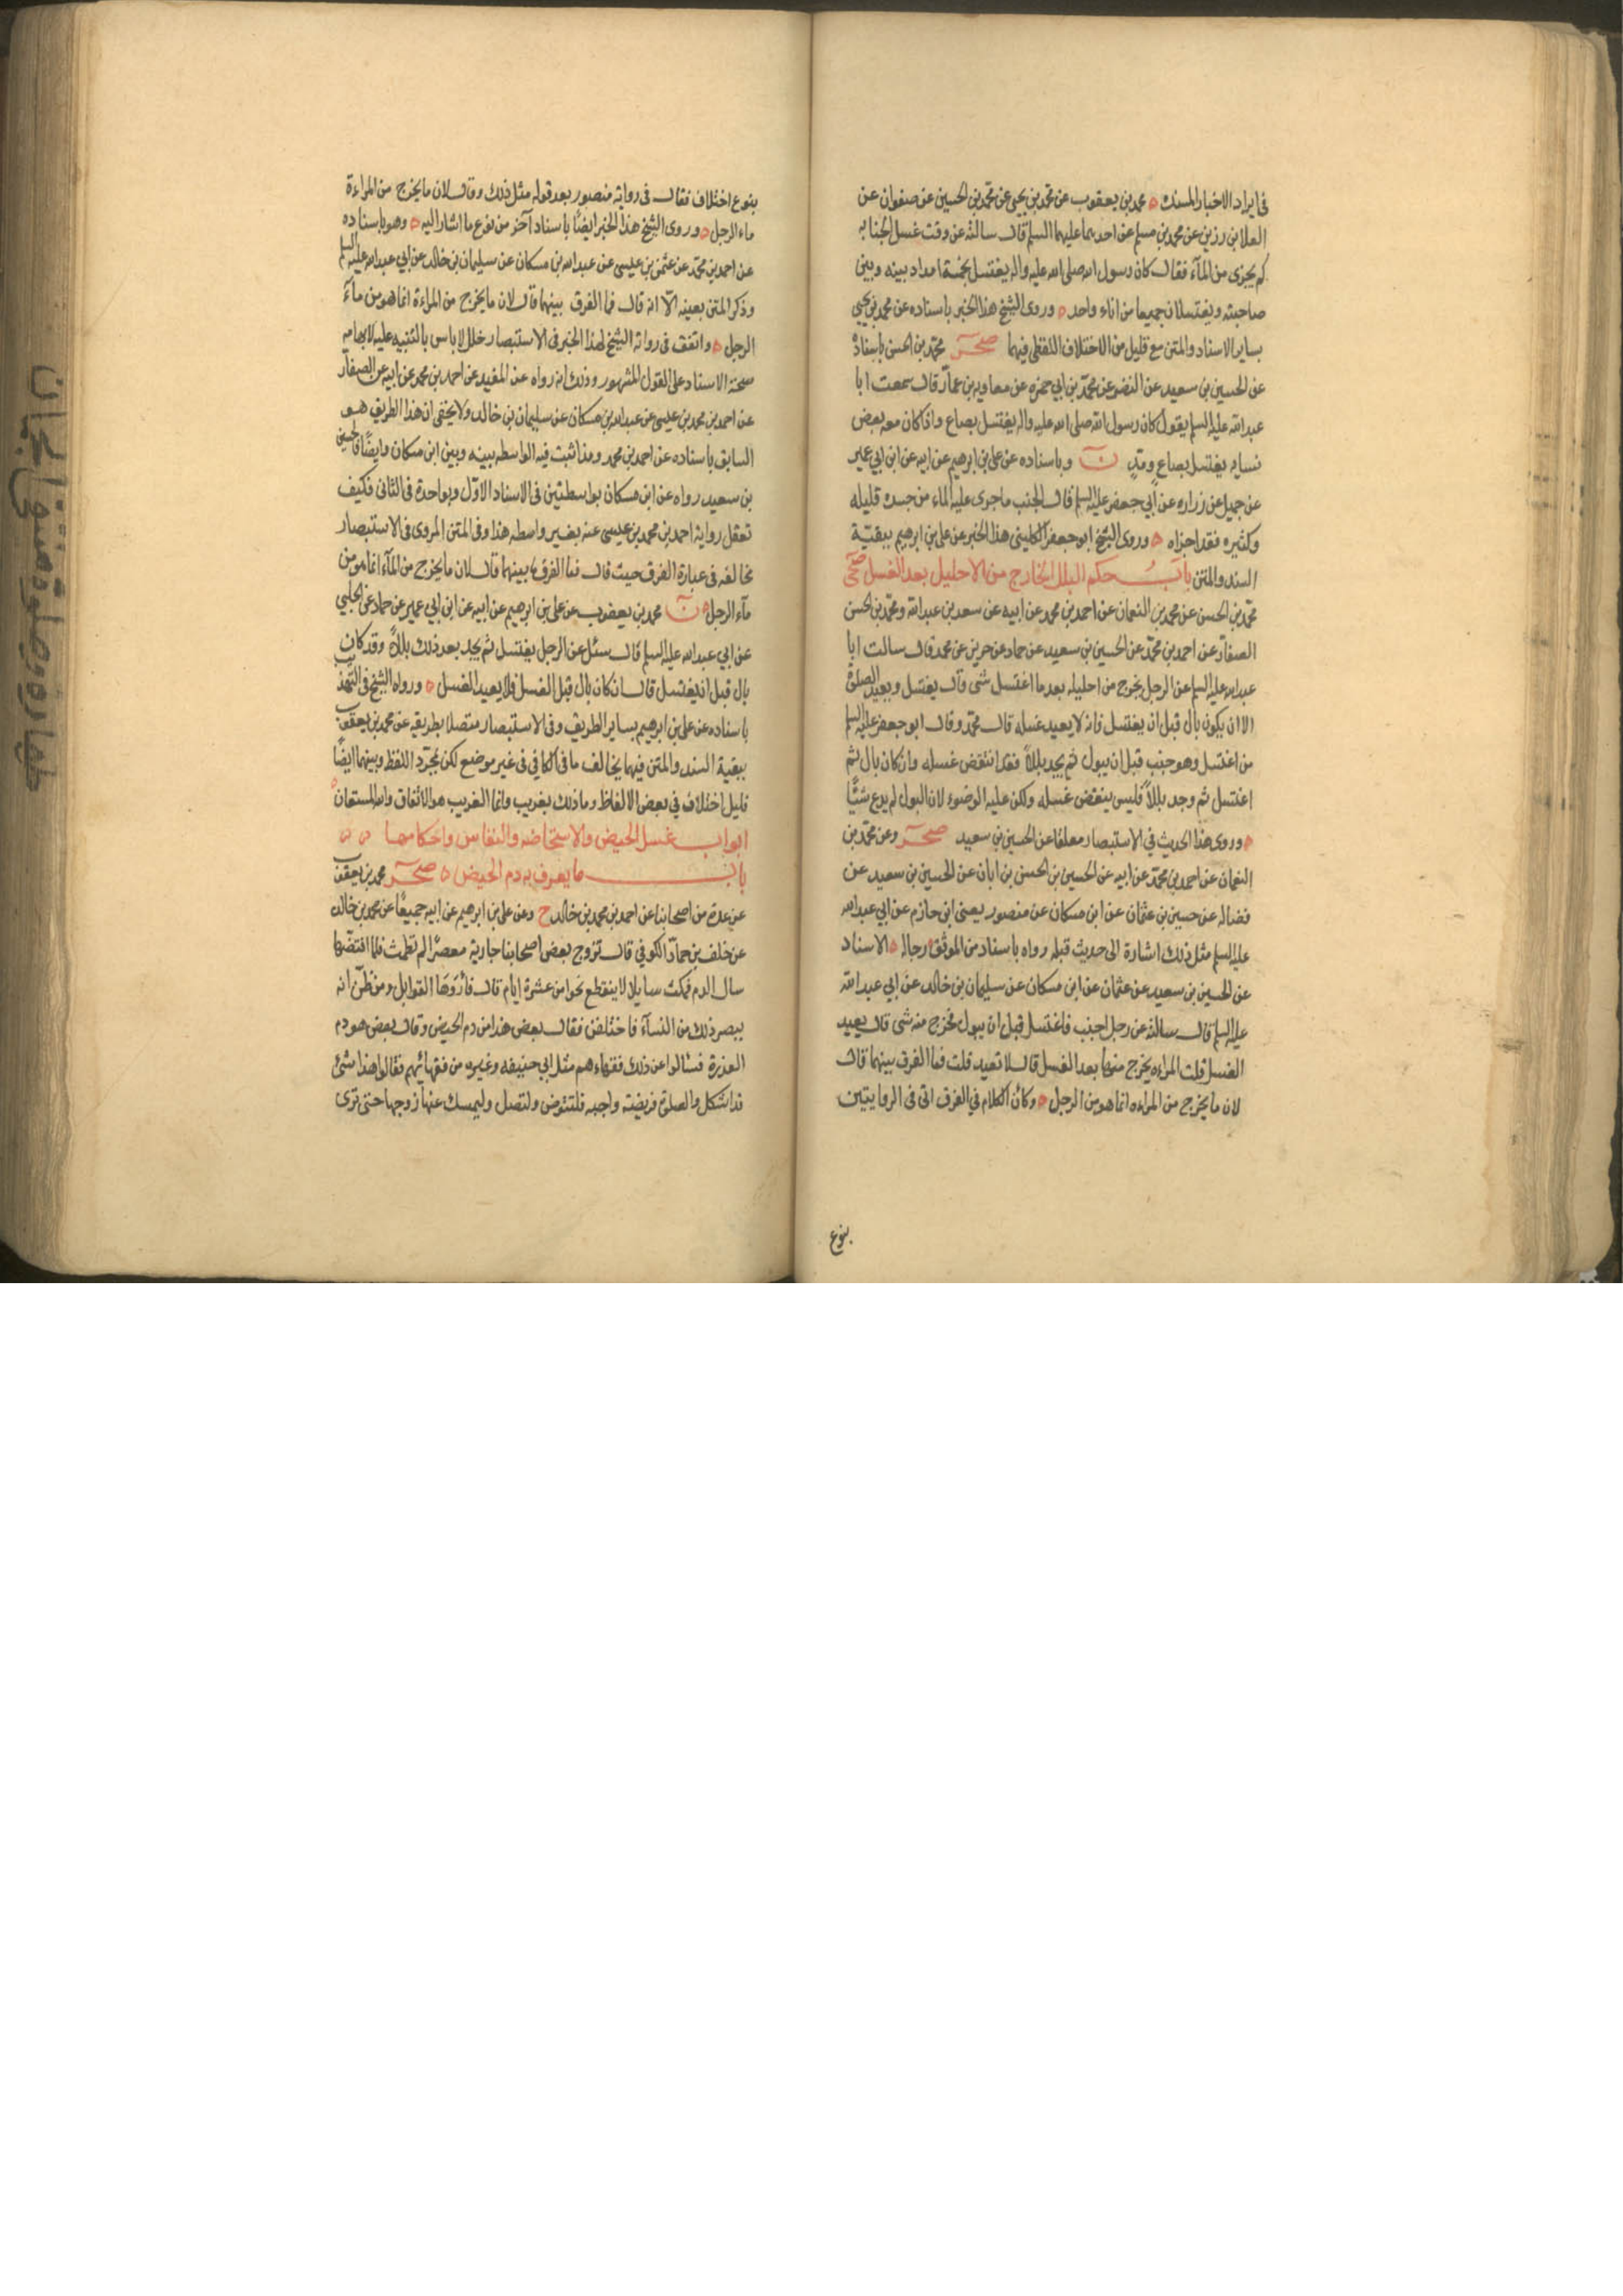 فى ايراد الاخبار المسنده ه محمد بن يعقوب عن محمد بن يحيى عن محمد بن الحسين عن صفوان عن
العلا بن رزين عن محمد بن مسلم عن احدهما عليهما السلم قال سالته عن وقت غسل الجنابه
كم يجزى من المآء فقال كان رسول الله صلى الله عليه واله يغتسل بخمسة امداد بينه وبين
صاحبته ويغتسلان جميعا من اناء واحد ه وروى الشيخ هذا الخبر باسناده عن محمد بن يحيى
بساير الاسناد والمتن مع قليل من الاختلاف اللفظى فيهما صحر محمد بن الحسن باسناده
عن الحسين بن سعيد عن النضر عن محمد بن ابي حمزه عن معاويه بن عمار قال سمعت ابا
عبد الله عليه السلم يقول كان رسول الله صلى الله عليه واله يغتسل بصاع واذا كان معه بعض
نسايه يغتسل بصاع ومد ن وباسناده عن على بن ابرهيم عن ابيه عن ابن ابي عمير
عن جميل عن زراره عن ابي جعفر عليه السلم قال الجنب ما جرى عليه الماء من جسده قليله
وكثيره فقد اجزاه ه وروى الشيخ ابو جعفر الكلينى هذا الخبر عن على بن ابرهيم ببقية
السند والمتن باب حكم البلل الخارج من الاحليل بعد الغسل صحى
محمد بن الحسن عن محمد بن النعمان عن احمد بن محمد عن ابيه عن سعد بن عبد الله ومحمد بن الحسن
الصفار عن احمد بن محمد عن الحسين بن سعيد عن حماد عن حريز عن محمد قال سالت ابا
عبد الله عليه السلم عن الرجل يخرج من احليله بعد ما اغتسل شى قال يغتسل ويعيد الصلوة
الا ان يكون بال قبل ان يغتسل فانه لا يعيد غسله قال محمد وقال ابو جعفر عليه السلم
من اغتسل وهو جنب قبل ان يبول ثم يجد بللاً فقد انتقض غسله وان كان بال ثم
اغتسل ثم وجد بللاً فليس ينقض غسله ولكن عليه الوضوء لان البول لم يدع شيئًا
ه وروى هذا الحديث في الاستبصار معلقا عن الحسين بن سعيد صحر وعن محمد بن
النعمان عن احمد بن محمد عن ابيه عن الحسين بن الحسن بن ابان عن الحسين بن سعيد عن
فضاله عن حسين بن عثمان عن ابن مسكان عن منصور يعنى ابن حازم عن ابي عبد الله
عليه السلم مثل ذلك اشارة الى حديث قبله رواه باسناد من الموثق رجاله ه الاسناد
عن الحسين بن سعيد عن عثمان عن ابن مسكان عن سليمان بن خالد عن ابي عبد الله
عليه السلم قال سالته عن رجل اجنب فاغتسل قبل ان يبول فخرج منه شى قال يعيد
الغسل قلت المراه يخرج منها بعد الغسل قال لا تعيد قلت فما الفرق بينهما قال
لان ما يخرج من المراه انما هو من الرجل ه وكان الكلام في الفرق اتى فى الروايتين
بنوع
بنوع اختلاف فقال فى رواية منصور بعد قوله مثل ذلك وقال لان ما يخرج من المراءة
ماء الرجل ه وروى الشيخ هذا الخبر ايضًا باسناد آخر من نوع ما اشار اليه ه وهو باسناده
عن احمد بن محمد عن عثمن بن عيسى عن عبد الله بن مسكان عن سليمان بن خالد عن ابي عبد الله عليه السلم
وذكر المتن بعينه الّا انه قال فما الفرق بينهما قال لان ما يخرج من المراءة انما هو من مآء
الرجل ه واتفق فى رواية الشيخ لهذا الخبر فى الاستبصار خلل لا باس بالتنبيه عليه لايهامه
صحة الاسناد على القول المشهور وذلك انه رواه عن المفيد عن احمد بن محمد عن ابيه عن الصفار
عن احمد بن محمد بن عيسى عن عبد الله بن مسكان عن سليمان بن خالد ولا يخفى ان هذا الطريق هو
السابق باسناده عن احمد بن محمد ومذ اثبت فيه الواسطه بينه وبين ابن مسكان وايضًا فالحسين
بن سعيد رواه عن ابن مسكان بواسطتين فى الاسناد الاوّل وبواحدة فى الثانى فكيف
تعقل رواية احمد بن محمد بن عيسى عنه بغير واسطه هذا وفى المتن المروى فى الاستبصار
مخالفه فى عبارة الفرق حيث قال فما الفرق بينهما قال لان ما يخرج من المآء انما هو من
مآء الرجل ه ن محمد بن يعقوب عن على بن ابرهيم عن ابيه عن ابن ابي عمير عن حماد عن الحلبي
عن ابي عبد الله عليه السلم قال سئل عن الرجل يغتسل ثم يجد بعد ذلك بللاً وقد كان
بال قبل ان يغتسل قال ان كان بال قبل الغسل فلا يعيد الغسل ه ورواه الشيخ فى التهذيب
باسناده عن على بن ابرهيم بساير الطريق وفى الاستبصار متصلا بطريقه عن محمد بن يعقوب
ببقية السند والمتن فيهما يخالف ما فى الكافي فى غير موضع لكن بمجرّد اللفظ وبينهما ايضًا
قليل اختلاف في بعض الالفاظ وما ذلك بغريب وانما الغريب هو الاتفاق والله المستعان ه
ابواب غسل الحيض والاستحاضه والنفاس واحكامها ه ه
باب ما يعرف به دم الحيض ه صحر محمد بن يعقوب
عن عدة من اصحابنا عن احمد بن محمد بن خالد ح وعن على بن ابرهيم عن ابيه جميعًا عن محمد بن خالد
عن خلف بن حماد الكوفي قال تزوج بعض اصحابنا جارية معصرًا لم تطمث فلما افتضها
سال الدم فمكث سايلا لا ينقطع نحوا من عشرة ايام قال فاروها القوابل ومن ظن انه
يبصر ذلك من النسآء فاختلفن فقال بعض هذا من دم الحيض وقال بعض هو دم
العذرة فسالوا عن ذلك فقهاءهم مثل ابي حنيفه وغيره من فقهائهم فقالوا هذا شئ
قد اشكل والصلوة فريضته واجبه فلتتوض ولتصل وليمسك عنها زوجها حتى ترى